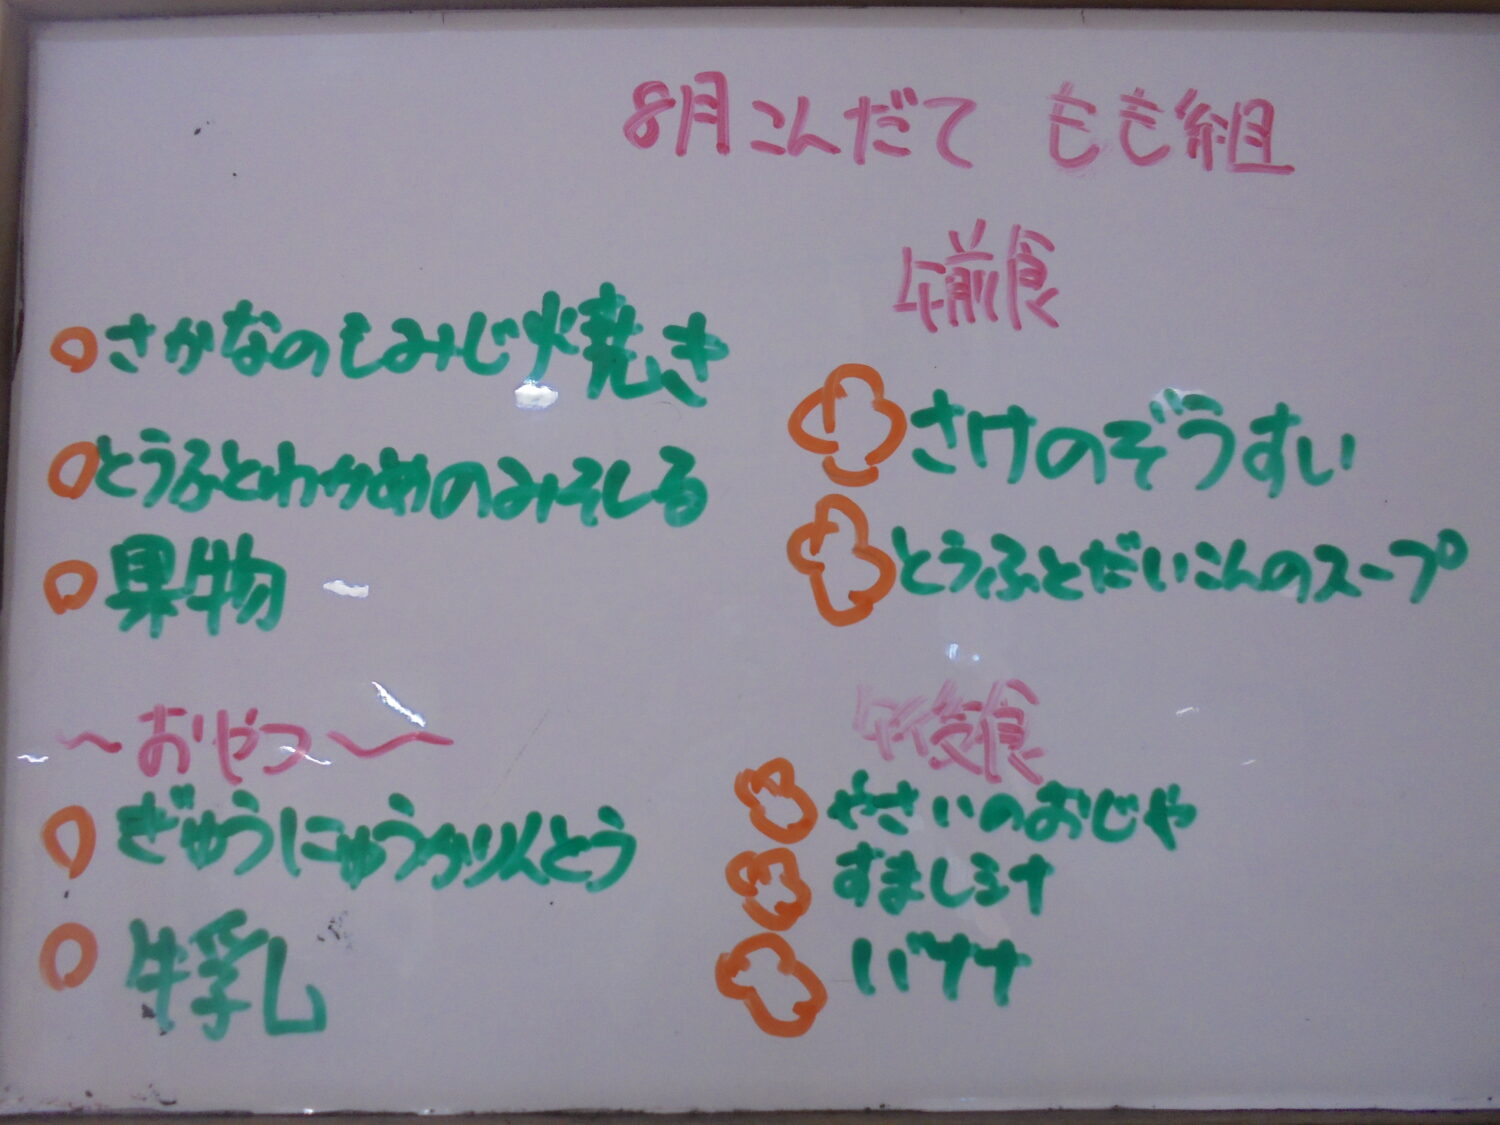 8月こんだて もも組
さかなのもみじ焼き
とうふとわかめのみそしる
果物
～おやつ～
ぎゅうにゅうかりんとう
牛乳
午前食
さけのぞうすい
とうふとだいこんのスープ
午後食
やさいのおじや
すまし汁
バナナ